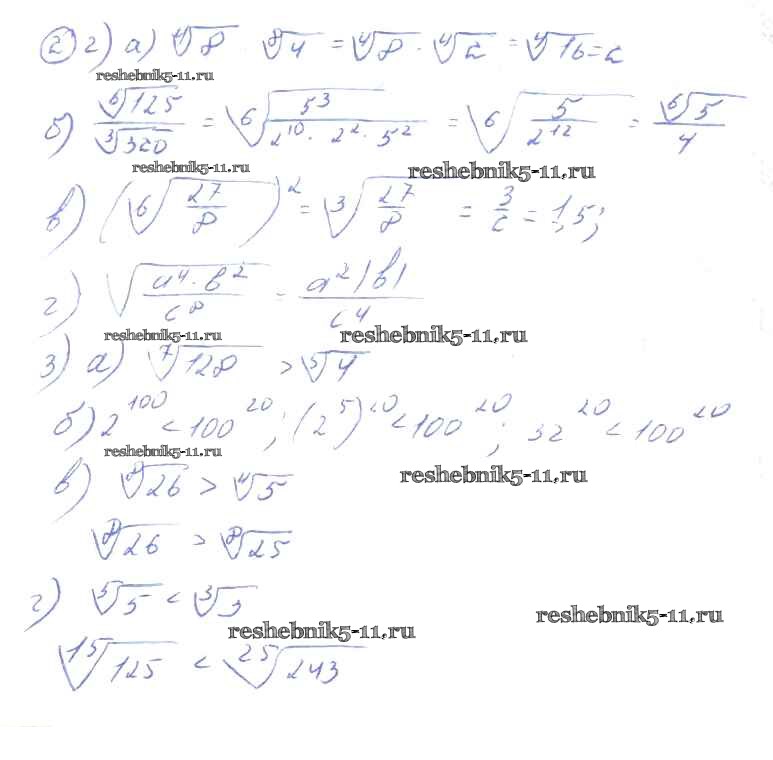 ② 2) а) ⁴√8 ⁸√4 = ⁴√8 · ⁴√2 = ⁴√16 = 2
reshebnik5-11.ru
б) ⁶√125 / ³√320 = ⁶√(5³ / 2¹⁰ · 2² · 5²) = ⁶√(5 / 2¹²) = ⁶√5 / 4
reshebnik5-11.ru reshebnik5-11.ru
в) (⁶√(27/8))² = ³√(27/8) = 3/2 = 1,5;
г) √(a⁴ · b² / c⁸) = a²|b| / c⁴
reshebnik5-11.ru reshebnik5-11.ru
3) а) ⁷√128 > ³√4
б) 2¹⁰⁰ < 100²⁰; (2⁵)²⁰ < 100²⁰; 32²⁰ < 100²⁰
reshebnik5-11.ru
в) ⁸√26 > ⁴√5
reshebnik5-11.ru
⁸√26 > ⁸√25
г) ⁵√5 < ³√3
reshebnik5-11.ru
reshebnik5-11.ru
¹⁵√125 < ²⁵√243